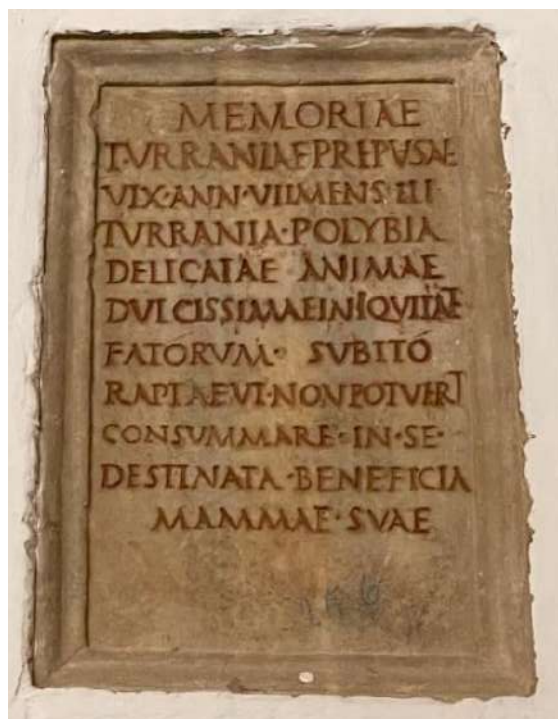 MEMORIAE
TVRRANIAE PREPVSAE
VIX·ANN·VII·MENS III
TVRRANIA·POLYBIA
DELICATAE ANIMAE
DVLCISSIMAE INIQVITATE
FATORVM· SVBITÓ
RAPTAE VT·NON POTVERIT
CONSVMMARE·IN·SE·
DESTINATA·BENEFICIA
MAMMAE·SVAE